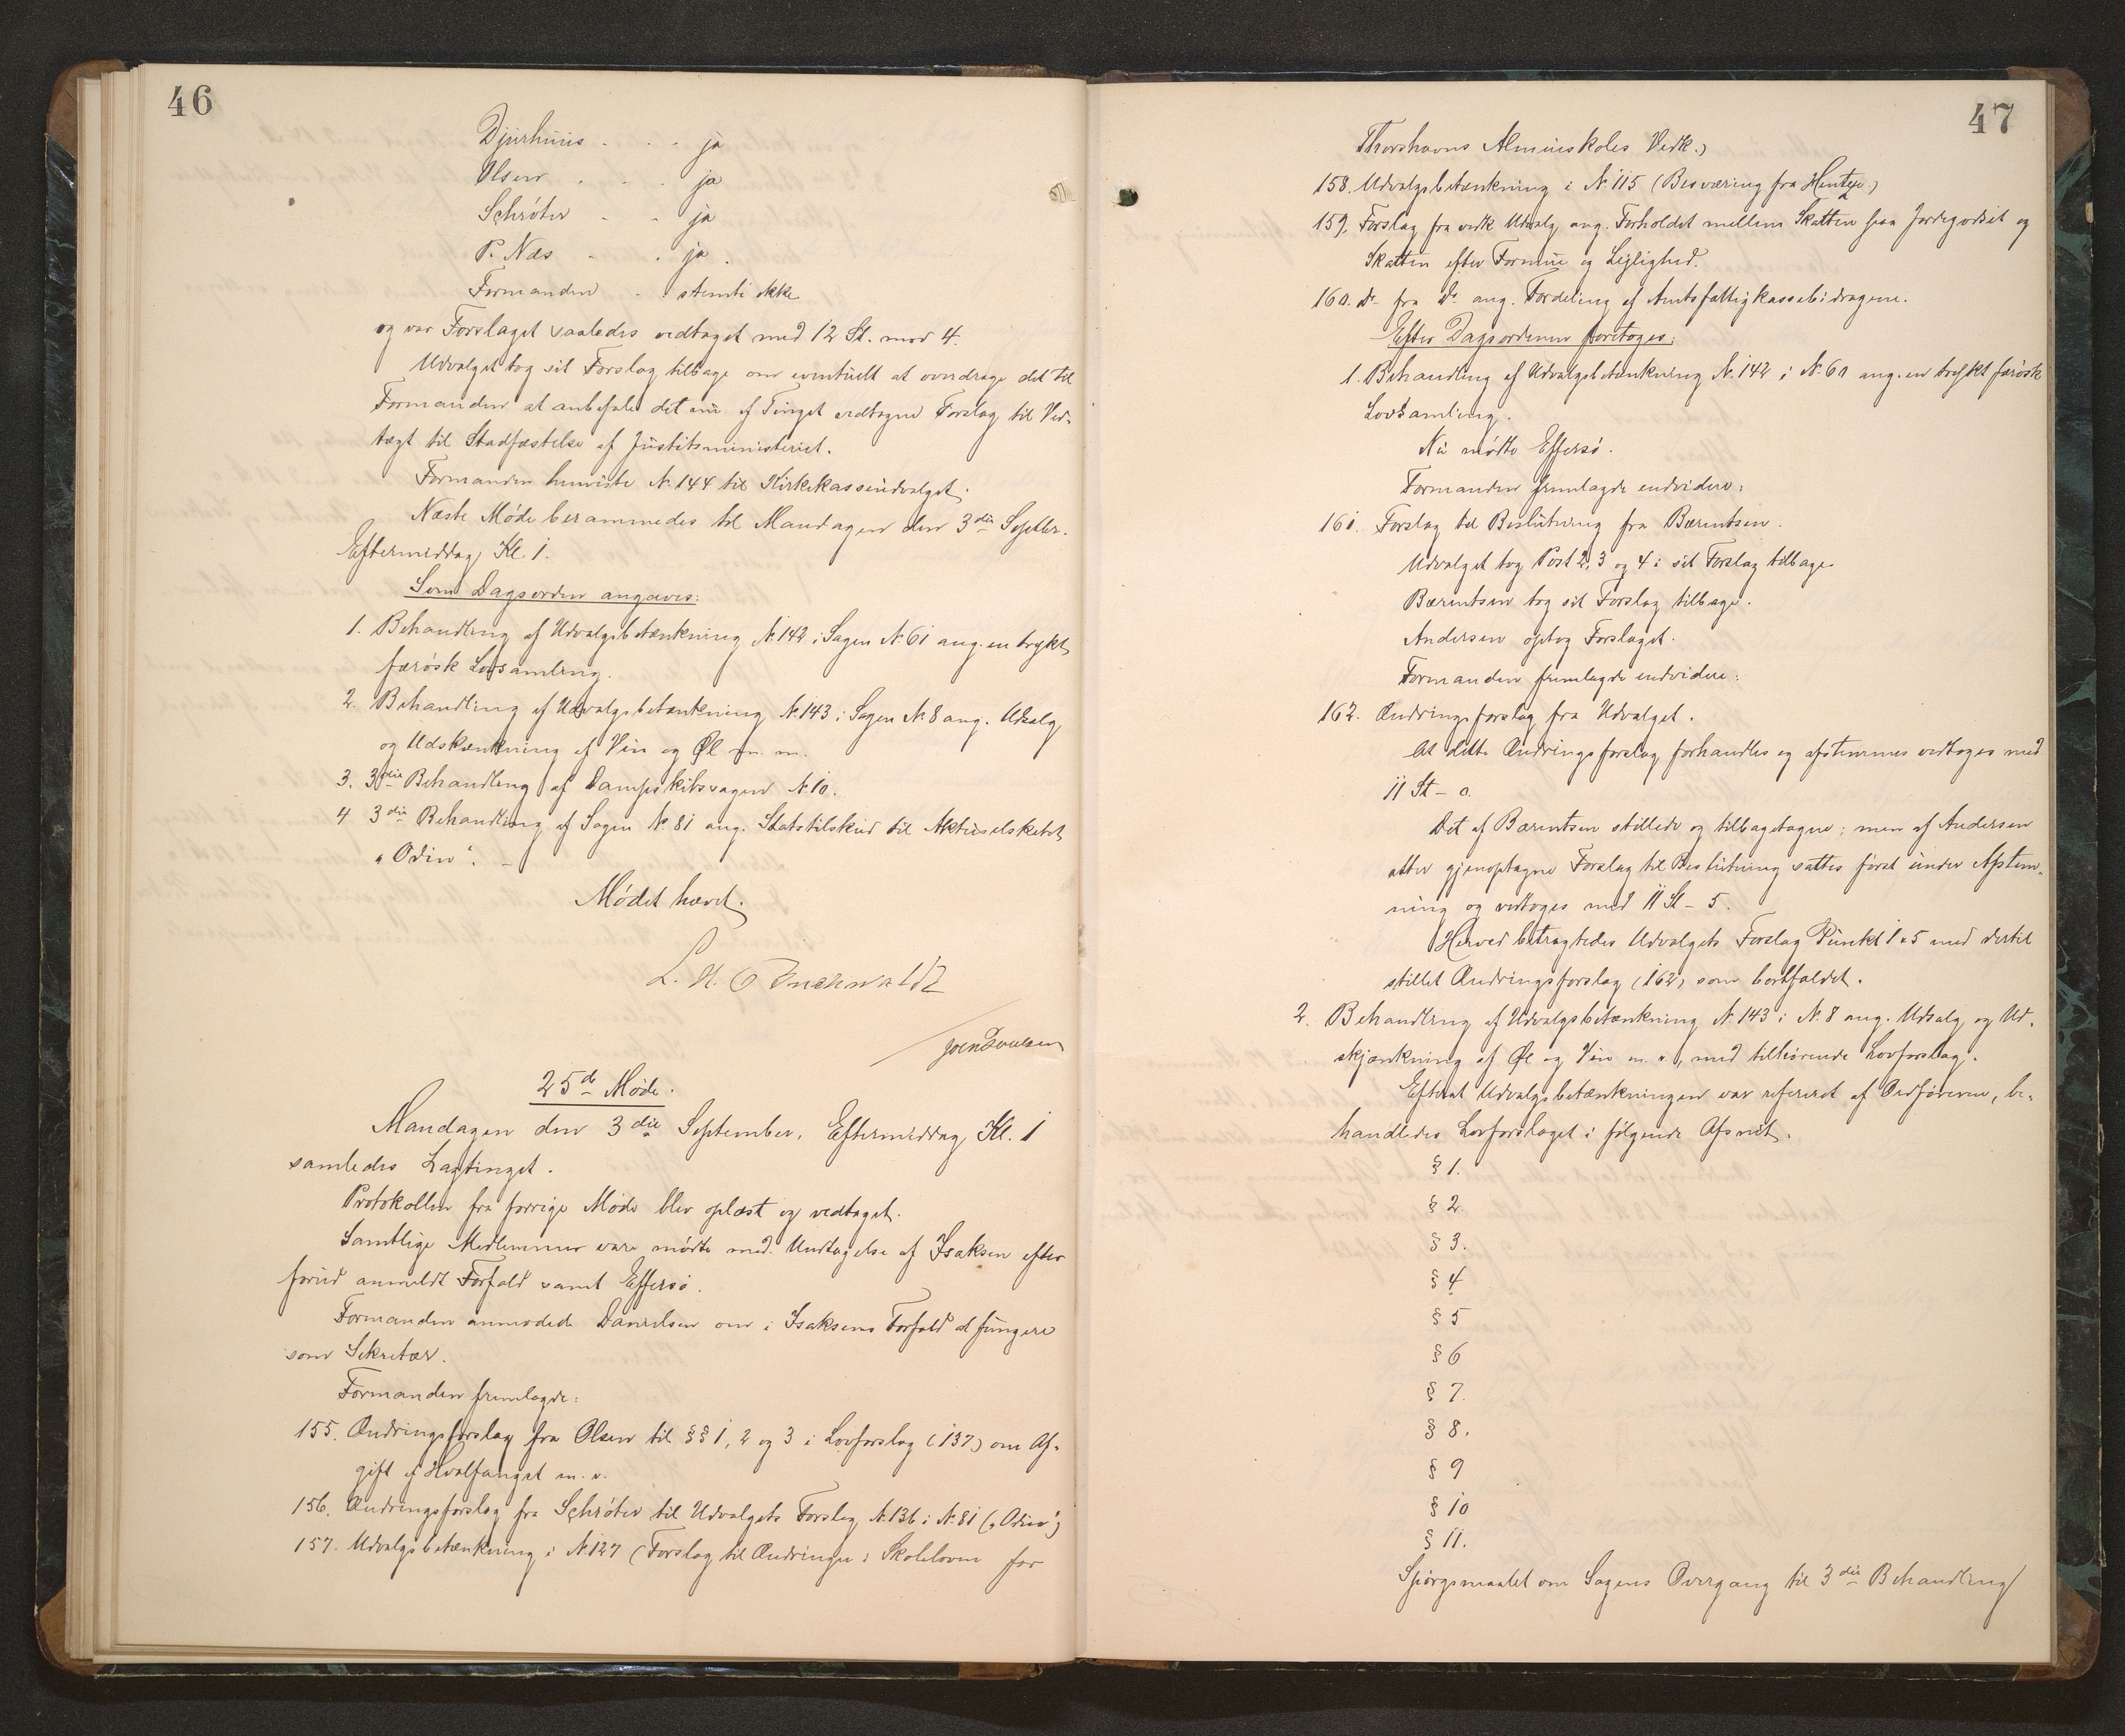 46
Djurhuus - - - ja
Olsen . . . ja
Schröter - - ja
P. Næs - . ja .
Formanden . . stemte ikke
og var Forslaget saaledes vedtaget med 12 St. mod 4.
Udvalget tog sit Forslag tilbage om eventuelt at overdrage det til
Formanden at anbefale det nu af Tinget vedtagne Forslag til Ved-
tægt til Stadfæstelse af Justitsministeriet.
Formanden henviste N. 144 til Kirkekasseudvalget.
Næste Møde berammedes til Mandagen den 3die Septbr.
Eftermiddag Kl. 1.
Som Dagsorden angaves:
1. Behandling af Udvalgsbetænkning N. 142 i Sagen N. 61 ang. en trykt
færøsk Lovsamling.
2. Behandling af Udvalgsbetænkning N. 143 i Sagen N. 8 ang. Udsalg
og Udskænkning af Vin og Øl m. m.
3. 3die Behandling af Dampskibssagen N. 10.
4 3die Behandling af Sagen N. 81 ang. Statstilskud til Aktieselskabet
„Odin“. -
Mødet hævet.
L. H. Buchwaldt
Joen Poulsen
25de Møde.
Mandagen den 3die September, Eftermiddag Kl. 1
samledes Lagtinget.
Protokollen fra forrige Møde blev oplæst og vedtaget.
Samtlige Medlemmer vare mødte med Undtagelse af Isaksen efter
forud anmeldt Forfald samt Effersø.
Formanden anmodede Danielsen om i Isaksens Forfald at fungere
som Sekretær.
Formanden fremlagde:
155. Ændringsforslag fra Olsen til §§ 1, 2 og 3 i Lovforslag (137) om Af-
gift af Hvalfangst m. v.
156. Ændringsforslag fra Schröter til Udvalgets Forslag N. 136 i N. 81 („Odin“)
157. Udvalgsbetænkning i N. 127 (Forslag til Ændringer i Skoleloven for
47
Thorshavns Almueskoles Vedk.)
158. Udvalgsbetænkning i N. 115 (Besværing fra Hentze.)
159. Forslag fra vedk Udvalg ang. Forholdet mellem Skatten paa Jordegodset og
Skatten efter Formue og Lejlighed.
160. Do fra Do ang. Fordeling af Amtsfattigkassebidragene.
Efter Dagsordenen foretoges:
1. Behandling af Udvalgsbetænkning N. 142 i N. 61 ang. en trykt færøsk
Lovsamling.
Nu mødte Effersø.
Formanden fremlagde endvidere:
161. Forslag til Beslutning fra Bærentsen.
Udvalget tog Post 2, 3 og 4 i sit Forslag tilbage.
Bærentsen tog sit Forslag tilbage.
Andersen optog Forslaget.
Formanden fremlagde endvidere:
162. Ændringsforslag fra Udvalget.
At dette Ændringsforslag forhandles og afstemmes vedtoges med
11 St - 0.
Det af Bærentsen stillede og tilbagetagne; men af Andersen
atter gjenoptagne Forslag til Beslutning sattes først under Afstem-
ning og vedtoges med 11 St - 5.
Herved betragtedes Udvalgets Forslag Punkt 1 & 5 med dertil
stillet Ændringsforslag (162) som bortfaldet.
2. Behandling af Udvalgsbetænkning N. 143 i N. 8 ang. Udsalg og Ud-
skjænkning af Øl og Vin m. v., med tilhørende Lovforslag.
Efterat Udvalgsbetænkningen var refereret af Ordføreren, be-
handledes Lovforslaget i følgende Afsnit.
§ 1.
§ 2
§ 3.
§ 4
§ 5
§ 6
§ 7.
§ 8.
§ 9
§ 10
§ 11.
Spørgsmaalet om Sagens Overgang til 3die Behandling